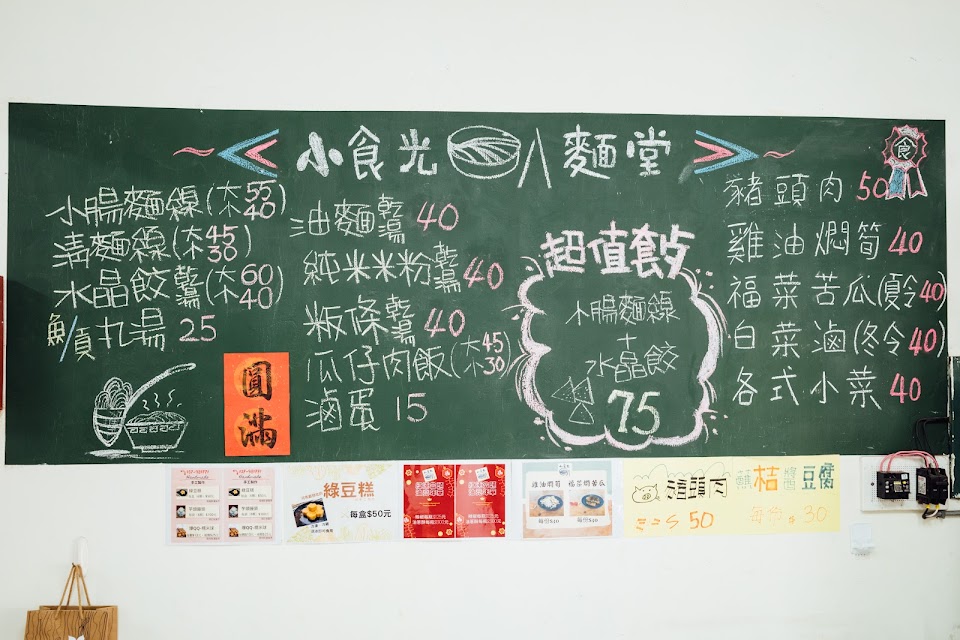 小食光 八麵堂
小腸麵線(大55 小40)
清麵線(大45 小30)
水晶餃乾湯(大60 小40)
魚/貢丸湯 25
油麵乾湯 40
純米米粉乾湯 40
粄條乾湯 40
瓜仔肉飯(大45 小30)
滷蛋 15
超值套餐
小腸麵線
+
水晶餃
75
食
豬頭肉 50
雞油燜筍 40
福菜苦瓜(夏令)40
白菜滷(冬令)40
各式小菜 40
圓滿
綠豆糕
每盒$50元
雞油燜筍 福菜燜苦瓜
每份$40 每份$40
豬頭肉
50
桔醬豆腐
每份$30